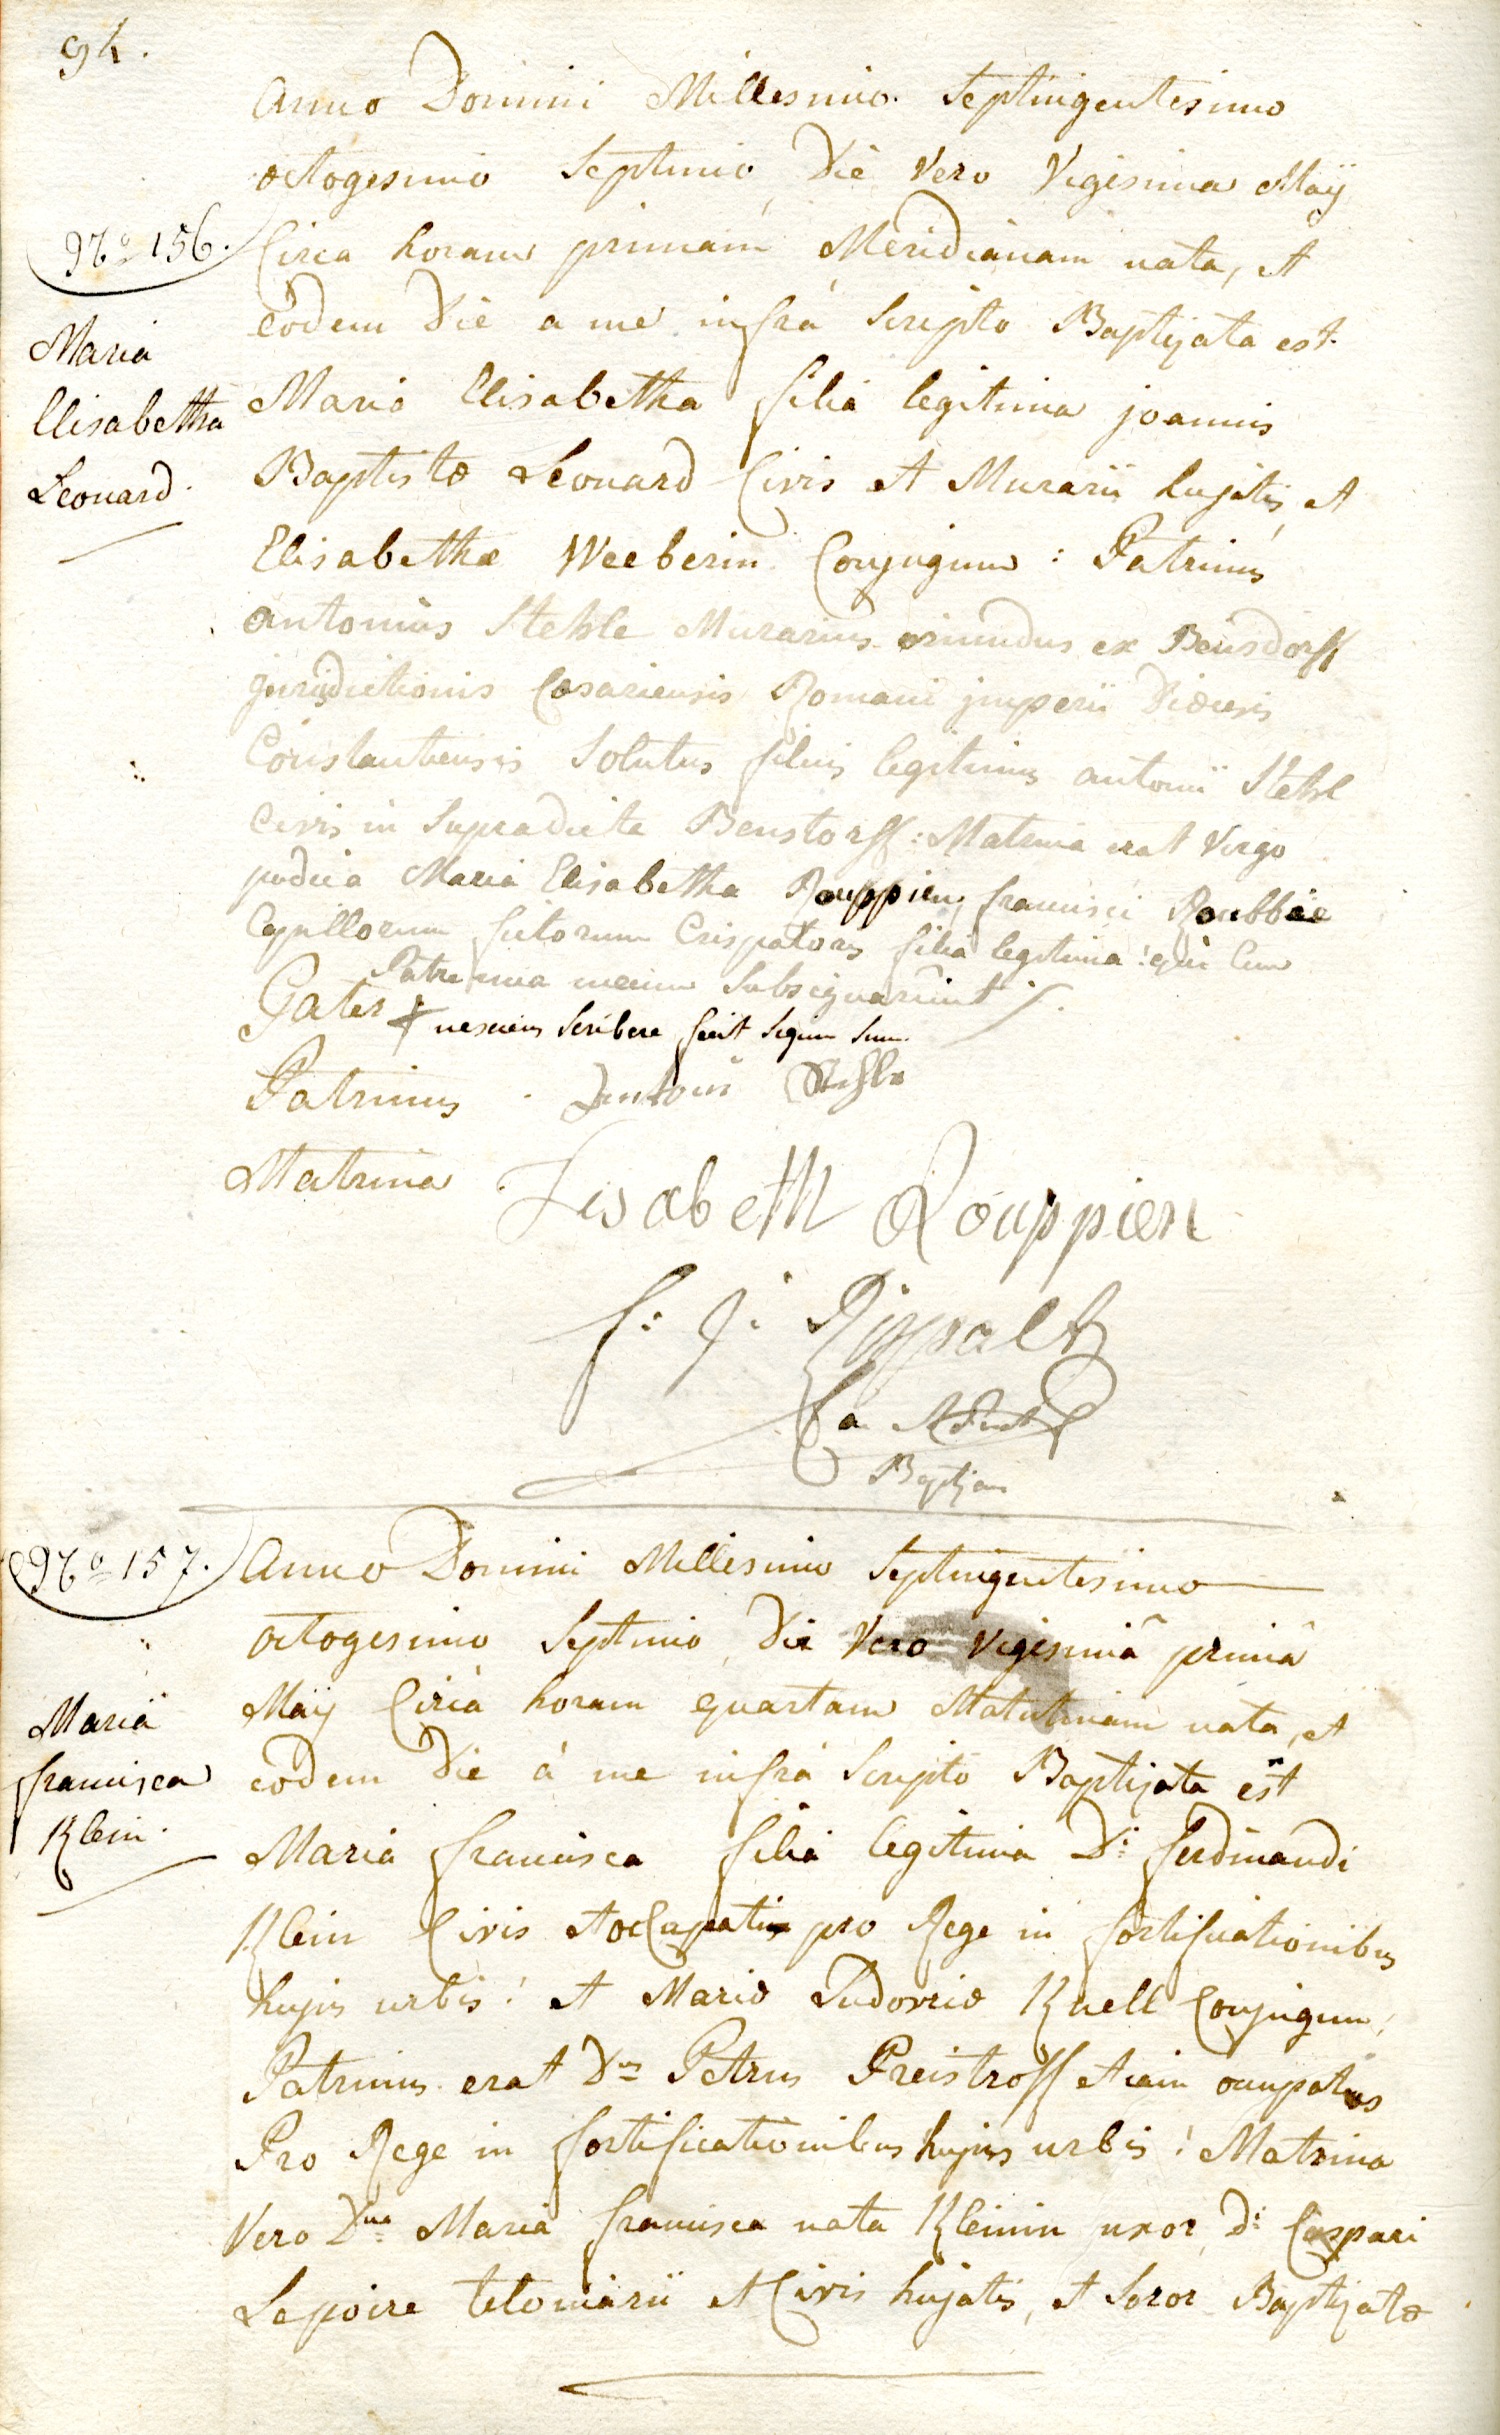 94.
Anno Domini Millesimo Septingentesimo
octogesimo Septimo, Die Vero Vigesima Maÿ
No 156.
Circa horam primam Meridianam nata, et
eodem Die a me infrà Scripto Baptizata est
Maria
Elisabetha
Leonard.
Maria Elisabetha filia legitima joannis
Baptistæ Leonard Civis et Murarii hujatis, et
Elisabethæ Weeberin Conjugum : Patrinus
antonius Stehle Murarius oriundus ex Beusdorff
jurisdictionis Cæsariensis Romani jmperii Diœcesis
Constantiensis Solutus filius legitimus antonii Stehl
Civis in Supradicta Benstorff : Matrina erat Virgo
pudica Maria Elisabetha Rouppien, francisci Roubbie
Capillorum fictorum Crispatoris filia legitima : qui Cum
Patre una mecum Subsignarunt ./.
Pater + nesciens Scribere fecit Signum Suum
Patrinus Antoni Stehle
Matrina Lisabeth Rouppien
f: J: Rippalt
Baptizans
No 157.
Anno Domini Millesimo Septingentesimo
octogesimo Septimo, Die Vero Vigesimâ primâ
Maÿ Circà horam quartam Matutinam nata, et
eodem Die à me infrà Scripto Baptizata est
Maria
francisca
Klein.
Maria francisca filia legitima D: ferdinandi
Klein Civis et occupati pro Rege in fortificationibus
hujus urbis : et Mariæ Ludovicæ Knell Conjugum,
Patrinus erat Dns Petrus Freistroff etiam occupatus
Pro Rege in fortificationibus hujus urbis : Matrina
Vero Dna Maria francisca nata Kleinin uxor D: Caspari
Lepoire teloniarii et Civis hujatis, et Soror Baptizatæ